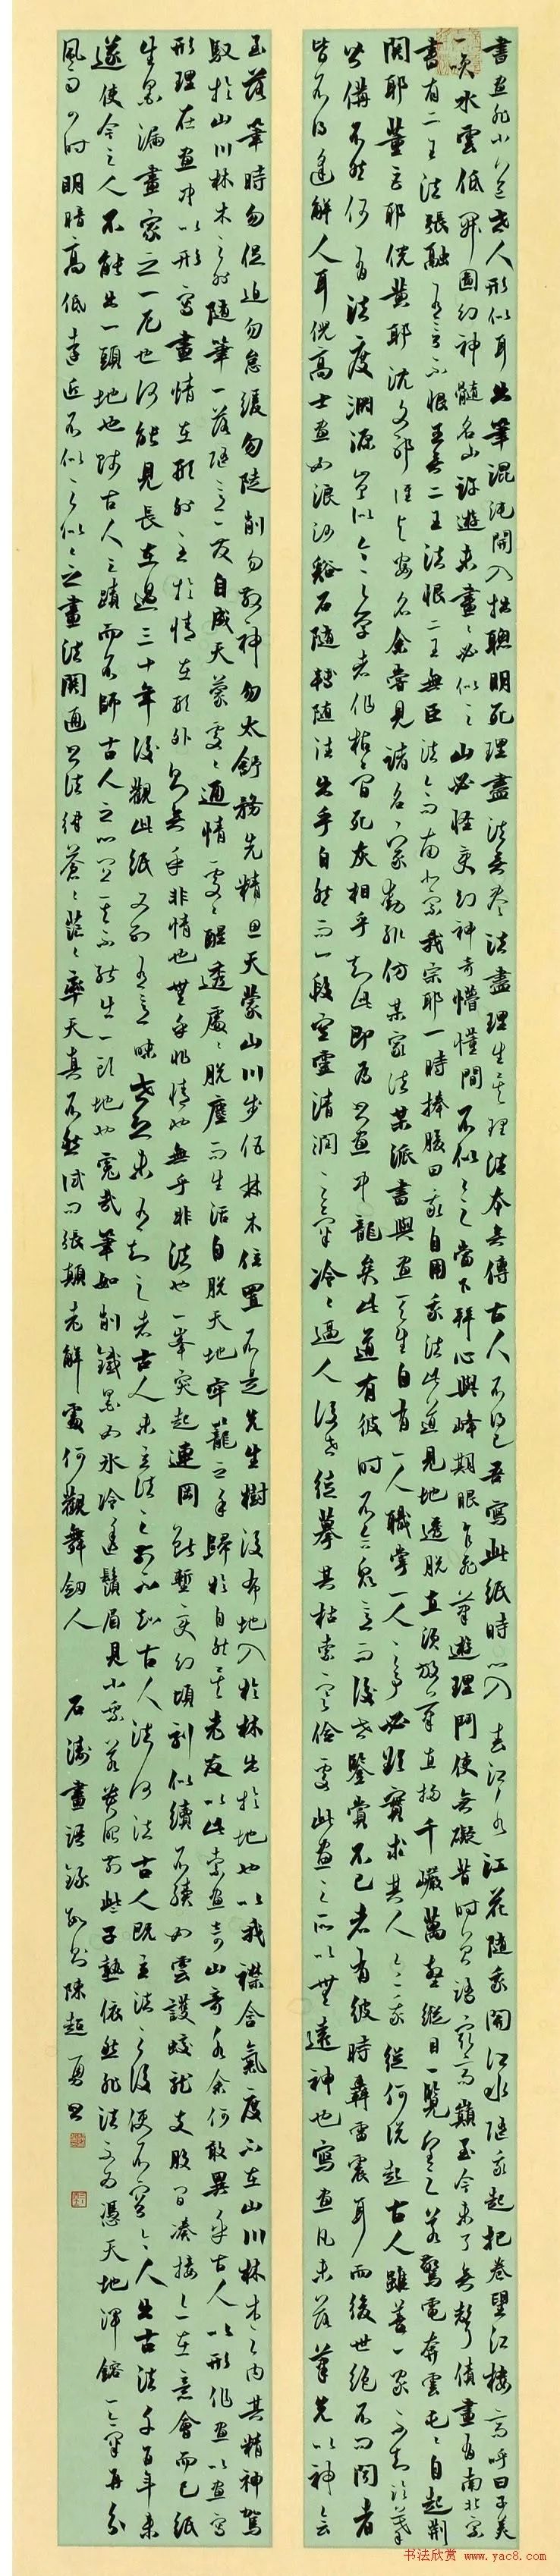 書畫非小道世人形似耳出筆混沌開入拙聰明死理盡法無盡法盡理生矣理法本無傳古人不得已吾寫此紙時心入春江水江花隨我開江水隨我起把卷望江樓高呼曰子美
一嘯水雲低開圖幻神髓名山許遊未畫畫必似之山必怪變幻神奇懵懂間不似似之當下拜心與峰期眼乍飛筆遊理鬥使無礙昔時曾踏最高巔至今未了無聲債畫有南北宗
書有二王法張融有言不恨臣無二王法恨二王無臣法今問南北宗我宗耶一時捧腹曰我自用我法此道見地透脫直須放筆直掃千巖萬壑縱目一覽望之若驚電奔雲屯屯自起荊
關耶董巨耶倪黃耶沈文耶誰與安名余嘗見諸名家動輒仿某家法某派書與畫天生自有一人職掌一人之事必欲實求其人令我從何說起古人雖善一家不知臨摹
皆備不然何有法度淵源豈似今之學者作枯骨死灰相乎知此即為書畫中龍矣此道有彼時不合眾意而後世鑒賞不已者有彼時轟雷震耳而後世絕不問聞者
皆不得逢解人耳倪高士畫如浪沙谿石隨轉隨注出乎自然而一段空靈清潤之氣冷冷逼人後世徒摹其枯索寒儉處此畫之所以無遠神也寫畫凡未落筆先以神會
至落筆時勿促迫勿怠緩勿陡削勿散神勿太舒務先精思天蒙山川步伍林木位置不是先生樹後布地入於林出於地也以我襟含氣度不在山川林木之內其精神駕
馭於山川林木之外隨筆一落隨意一發自成天蒙處處通情處處醒透處處脫塵而生活自脫天地牢籠之手歸於自然矣老友以此索畫奇山奇水余何敢異乎古人以形作畫以畫寫
形理在畫中以形寫畫情在形外至於情在形外則無乎非情也無乎非情也無乎非法也一峯突起連岡斷塹變幻頃刻似續不續如雲護蛟龍支股間湊接亦在意會而已紙
生墨漏畫家之一厄也何能見長在過三十年後觀此紙又別有意味世亦未有知之者古人未立法之前不知古人法何法古人既立法之後便不容今人出古法千百年來
遂使今之人不能出一頭地也師古人之蹟而不師古人之心宜其不能出一頭地也冤哉筆如削鐵墨如冰冷逢鬚眉見小乘若貴眼前些子熱依然非法之為憑天地渾鎔一氣再分
風雨四時明暗高低遠近不似之似似之畫法關通書法律蒼蒼茫茫率天真不然試問張顛老解處何觀舞劍人 石濤畫語錄數則陳超勇書
书法欣赏 www.yac8.com